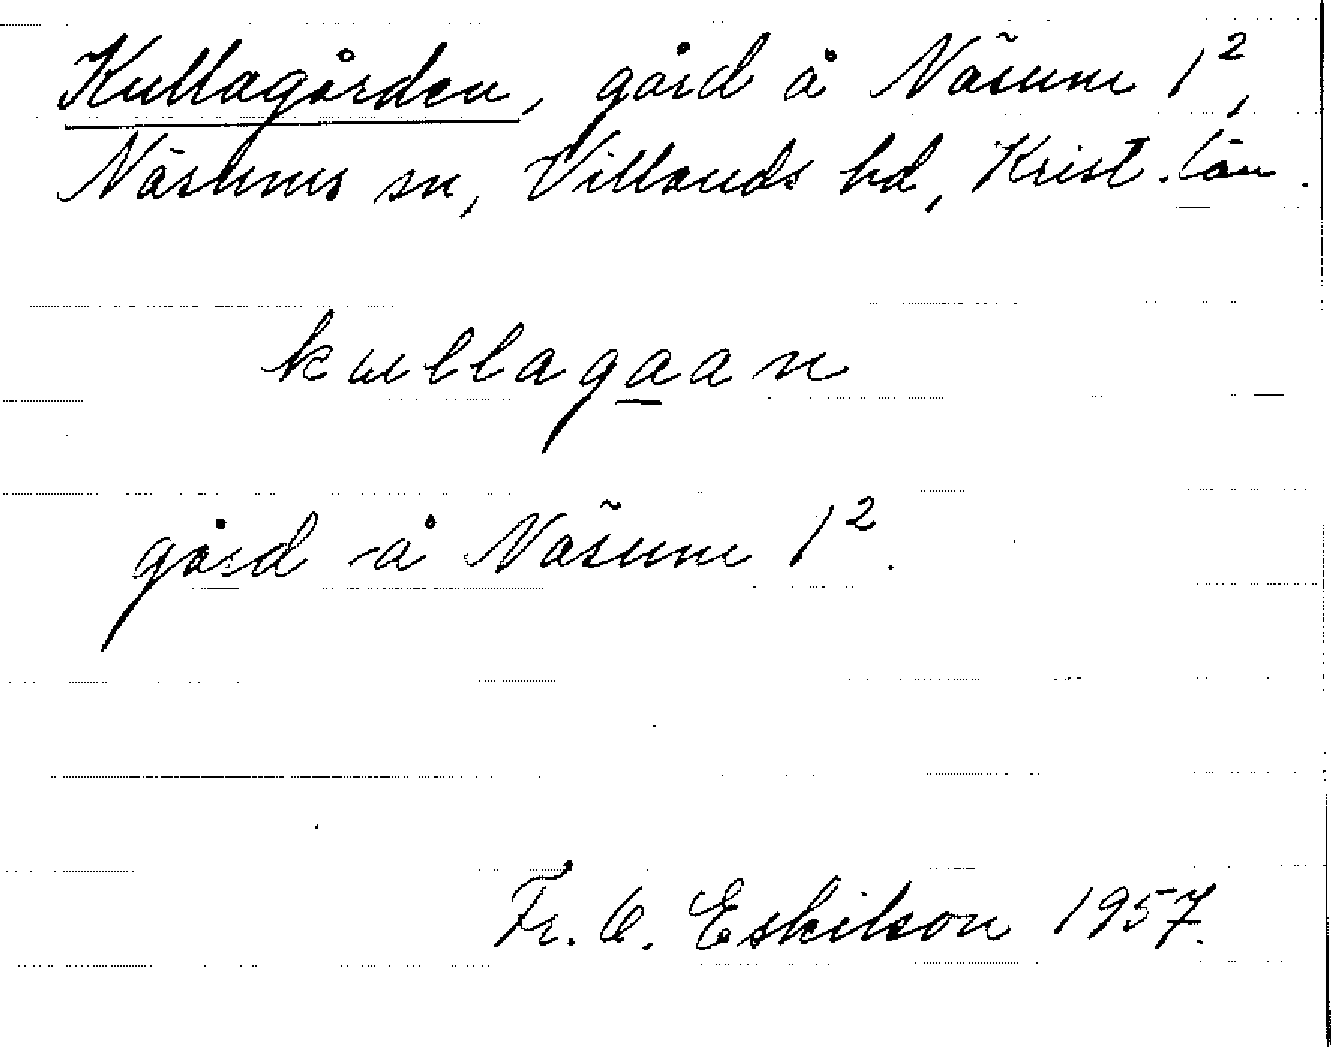 Kullagården, gård å Näsum 1²,
Näsums sn, Villands hd, Krist. län.
kullagaan
gård å Näsum 1².
Fr. O. Eskilson 1957.